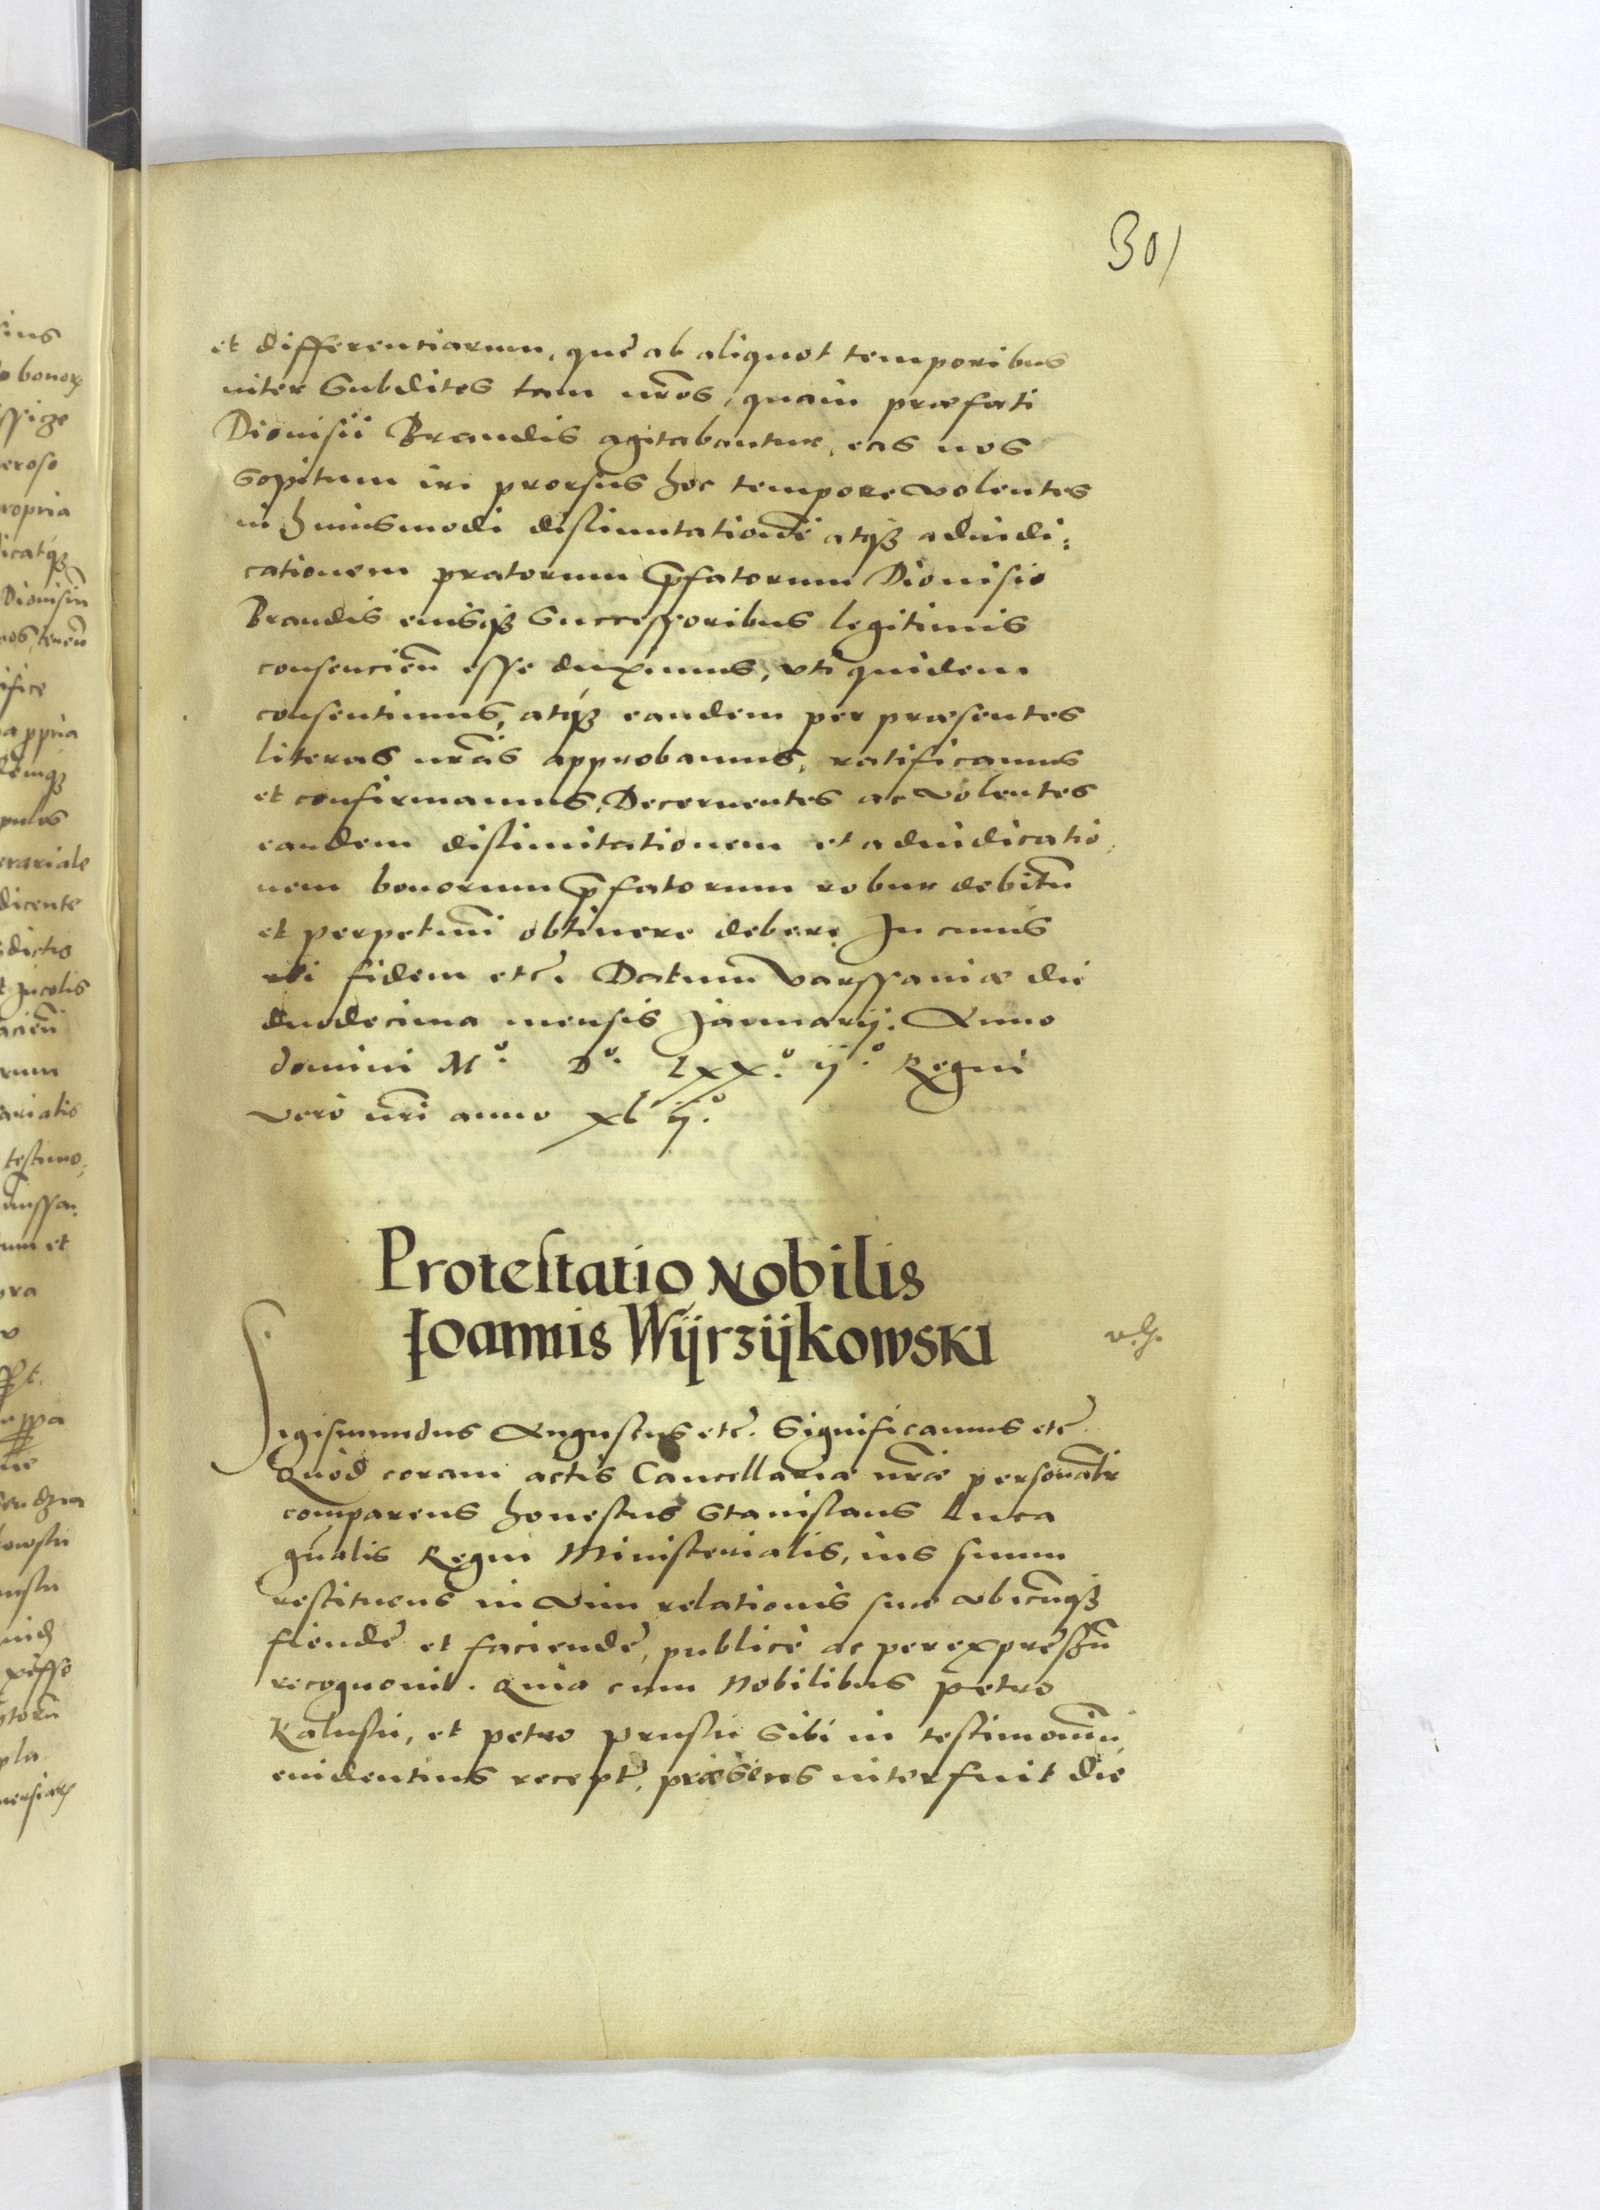 301
et differentiarum, quę ab aliquot temporibus
inter Subditos tam nr̃os, quam præfati
Dionisii Brandis agitabantur, eas nos
Sopitum iri prorsus hoc tempore volentes
in huiusmodi dislimitationẽ atqʒ adiudi:
cationem pratorum p̃fatorum Dionisio
Brandis eiusqʒ Successoribus legitimis
consenciẽn esse duximus, uti quidem
consentimus, atqʒ eandem per præsentes
literas nr̃as approbamus, ratificamus
et confirmamus, Decernentes ac volentes
eandem dislimitationem et adiudicatio,
nem bonorum p̃fatorum robur debitũ
et perpetuũ obtinere debere. In cuius
rei fidem etc̃. Datum Varssaviæ die
duodecima mensis Januarij. Anno
domini Mº. Dº. Lxxº. ijº. Regni
vero nr̃i anno xl ijº.
Protestatio Nobilis
Joannis Wÿrzÿkowski
Sigismundus Augustus etc̃. Significamus etc̃.
Quod coram actis Cancellariæ nr̃æ personalr̃
comparens honestus Stanislaus Luca
gñalis Regni Ministerialis, ius suum
restituens in vim relationis suæ ubicũqʒ
fiendę et faciendę, publicè ac per expressũ
recognovit. Quia cum Nobilibus Petro
Kaluski, et Petro Pruski Sibi in testimoniũ
euidentius recept̃, præsens interfuit die